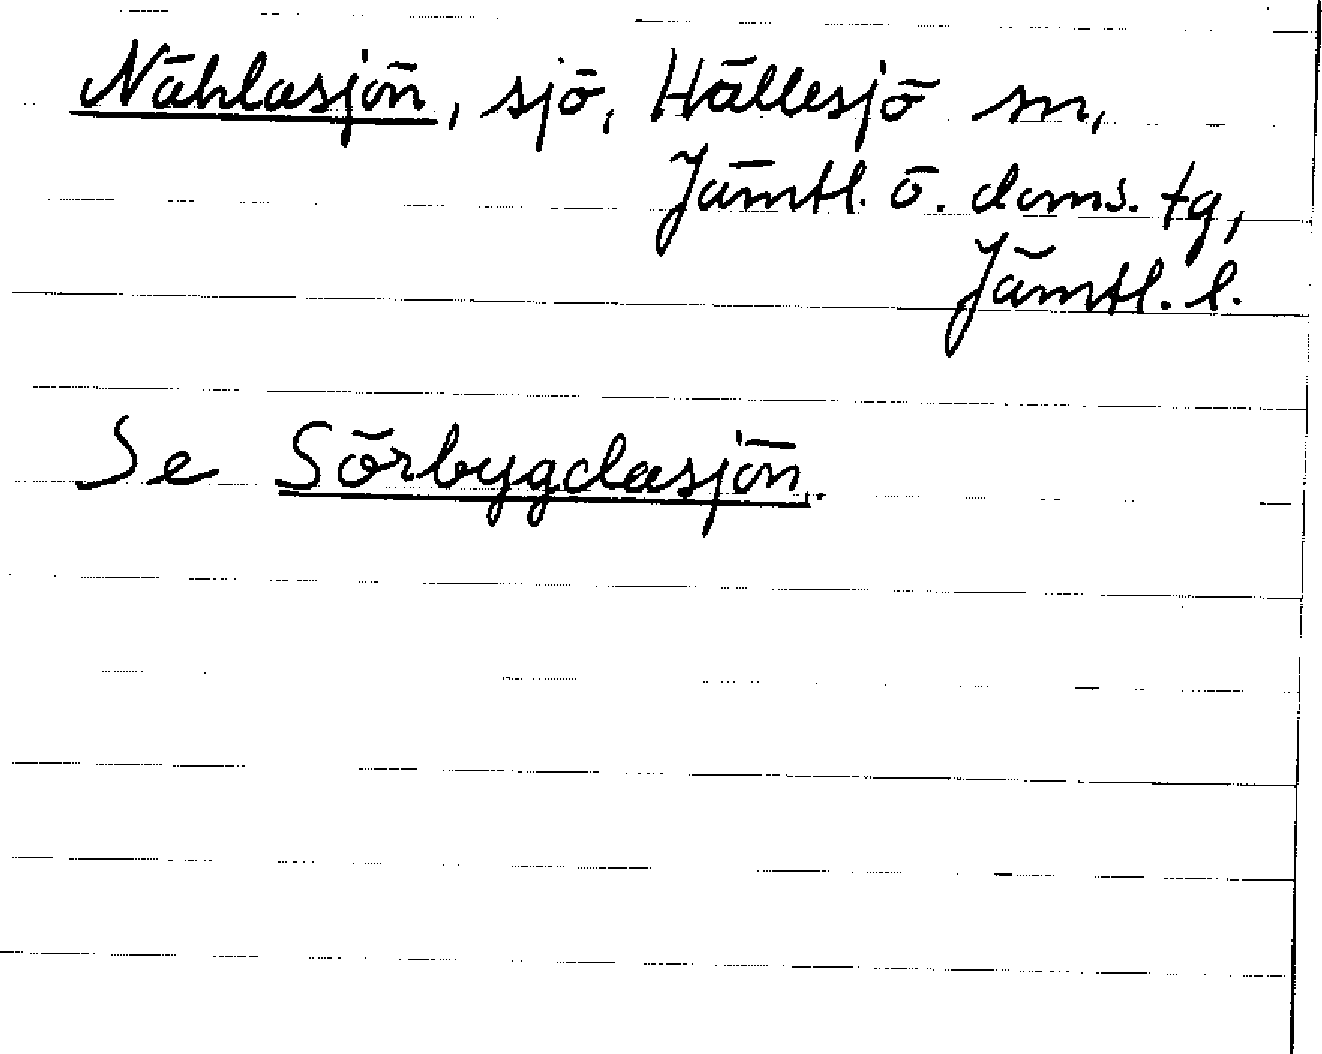 Nählasjön, sjö, Hällesjö sn,
Jämtl. ö. doms. tg,
Jämtl. l.
Se Sörbygdasjön.